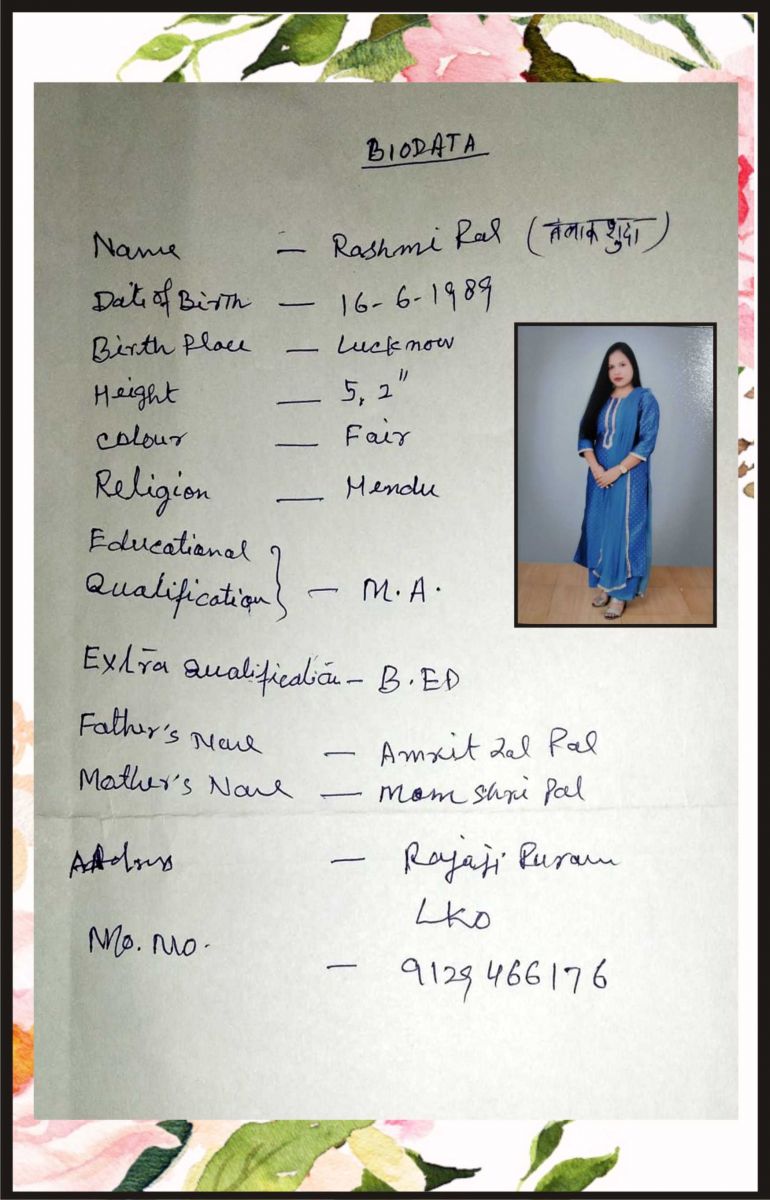 BIODATA
Name — Rashmi Pal (तलाक शुदा)
Date of Birth — 16-6-1989
Birth Place — Lucknow
Height — 5, 2"
Colour — Fair
Religion — Hendu
Educational
Qualification } — M.A.
Extra Qualification — B.ED
Father's Name — Amrit Lal Pal
Mother's Name — Mam Shri Pal
Address — Rajaji Puram
LKO
Mo. No.
— 9129466176